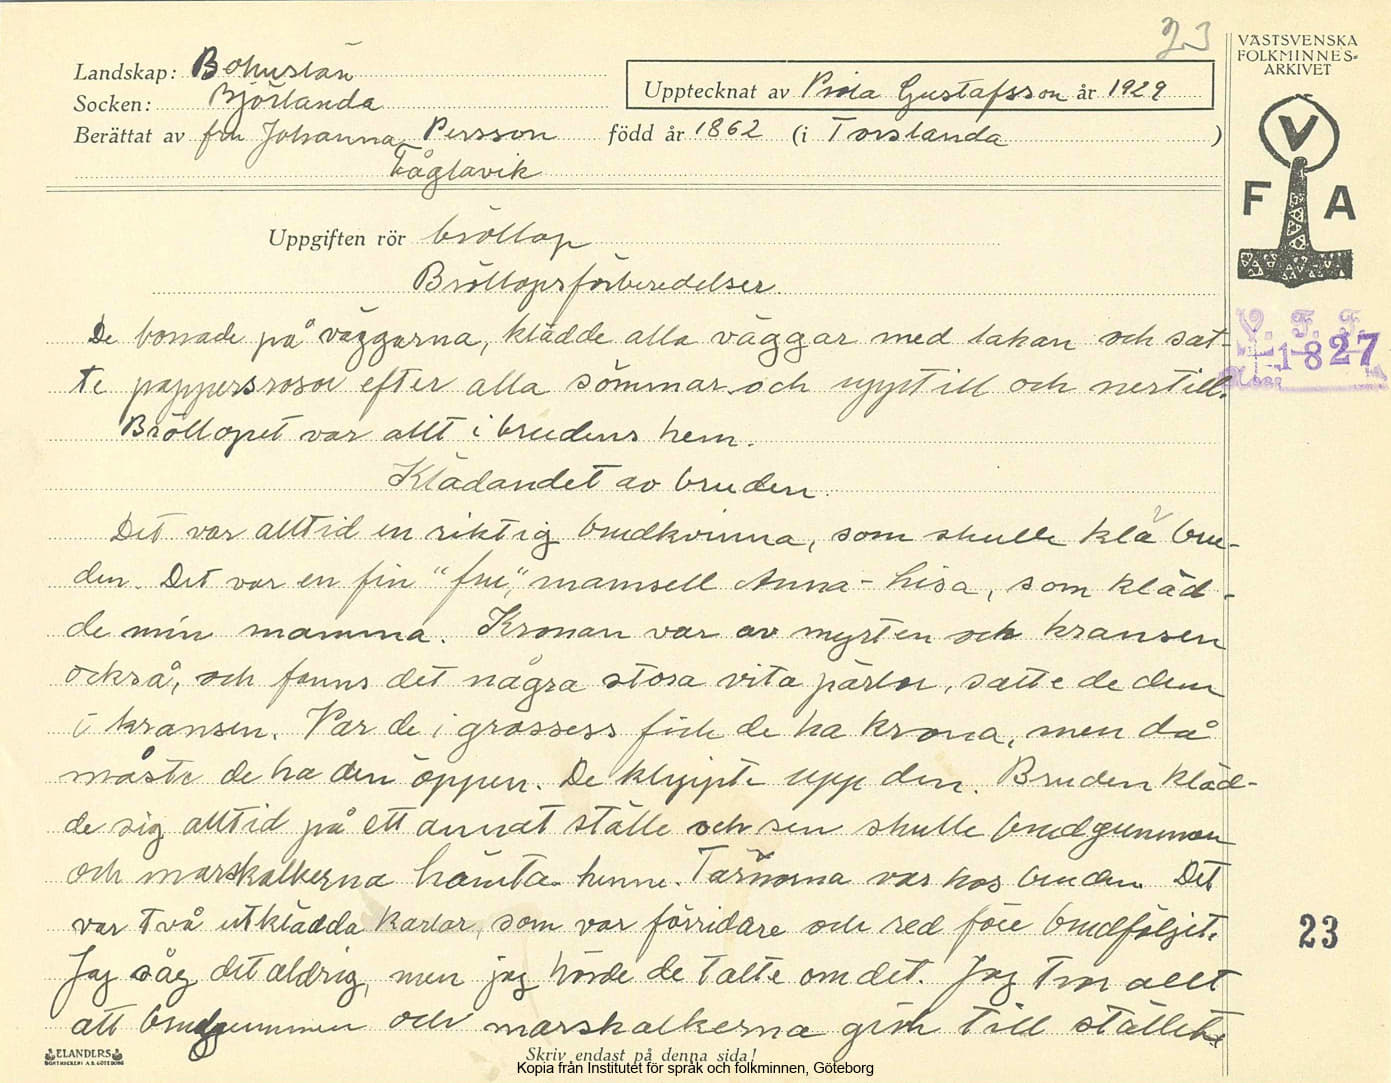 23
VÄSTSVENSKA
FOLKMINNES-
ARKIVET
Landskap: Bohuslän
Socken: Björlanda
Upptecknat av Gustafsson år 1929
Berättat av fru Johanna Persson född år 1862 (i Torslanda )
Fåglavik
V
F A
Uppgiften rör bröllop
Bröllopsförberedelser.
De bonade på väggarna, klädde alla väggar med lakan och sat-
te pappersrosor efter alla sömmar och upptill och nertill.
V. F. F.
1827
Bröllopet var allt i brudens hem.
Klädandet av bruden.
Det var alltid en riktig brudkvinna, som skulle klä bru-
den. Det var en fin "fru", mamsell Anna-Lisa, som kläd-
de min mamma. Kronan var av myrten och kransen
också, och fanns det några stora vita pärlor, satte de dem
i kransen. Var de i grossess fick de ha krona, men då
måste de ha den öppen. De klippte upp den. Bruden kläd-
de sig alltid på ett annat ställe och sen skulle brudgummen
och marskalkerna hämta henne. Tärnorna var hos bruden. Det
var två utklädda karlar, som var förridare och red före brudföljet.
23
Jag såg det aldrig, men jag hörde de talte om det. Jag tror allt
att brudgummen och marskalkerna gick till stället
ELANDERS
BOKTRYCKERI A.B. GÖTEBORG
Skriv endast på denna sida!
Kopia från Institutet för språk och folkminnen, Göteborg